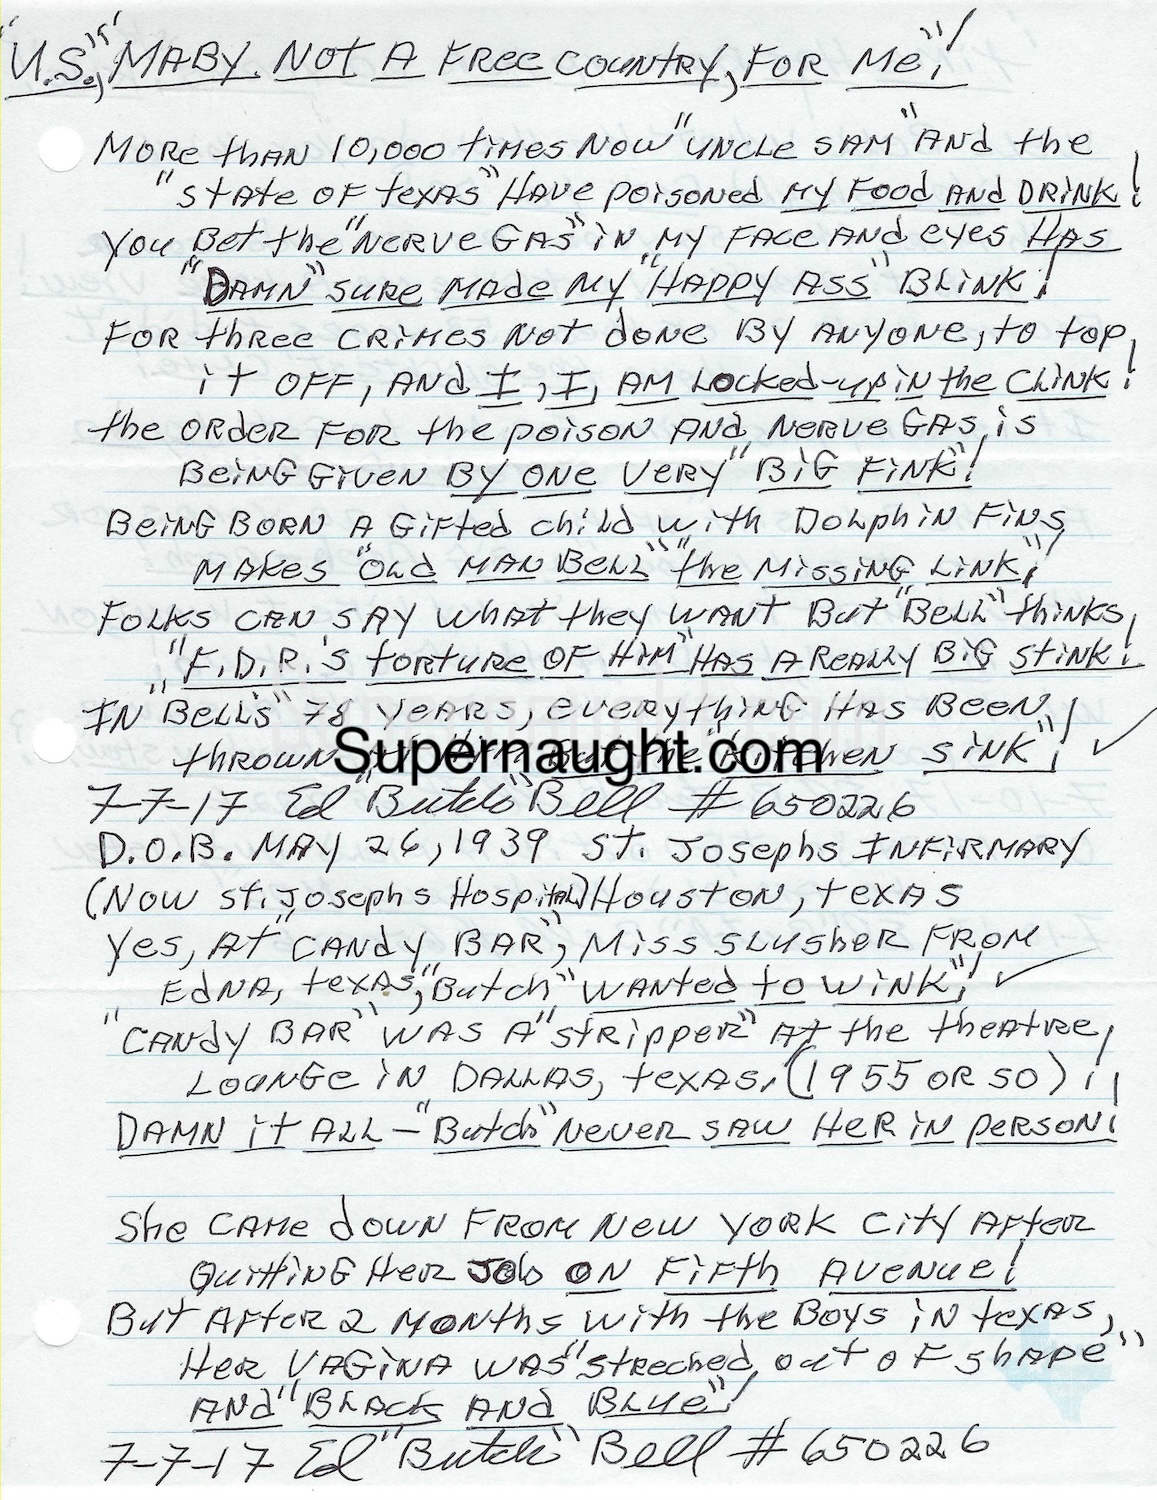 "U.S.," MABY. NOT A FREE COUNTRY, FOR ME"!
MORE thAN 10,000 tiMES NOW "UNCLE SAM" AND the
"StAtE OF tEXAS" HAVE POiSONED MY FOOD AND DRiNK!
YOU BEt thE "NERVE GAS" iN MY FACE AND EYES HAS
"DAMN" SURE MADE MY "HAPPY ASS" BLiNK!
FOR thREE CRiMES NOt dONE BY ANYONE, tO tOP,
it OFF, AND I, I, AM LOCKED-UP iN thE CLiNK!
thE ORdER FOR thE POiSON AND NERVE GAS, iS
BEiNG GiVEN BY ONE VERY "BiG FiNK"!
BEiNG BORN A GiFtEd child with DOLphiN FiNS,
MAKES "OLd MAN BELL" "thE MiSSiNG LiNK"!
FOLKS CAN SAY WhAt thEY WANT BUt "BELL" thiNKS,
"F.D.R.'S tORtURE OF HiM" HAS A REALLY BiG StiNK!
IN "BELL'S" 78 YEARS, EVERYthiNG HAS BEEN,
thROWN SiNK"!
Supernaught.com
7-7-17 Ed "Butch" Bell # 650226
D.O.B. MAY 26, 1939 St. JOSEphS INFiRMARY
(NOW St. JOSEphS HOSPitAL) HOUStON, tEXAS
YES, At "CANdY BAR", MiSS SLUShER FROM
EdNA, tEXAS, "Butch" WANtEd tO WiNK"!
"CANdY BAR" WAS A "StRiPPER" At thE thEAtRE,
LOUNGE iN DALLAS, tEXAS, (1955 OR SO)!
DAMN it ALL - "Butch" NEVER SAW HER iN PERSON!
ShE CAME dOWN FROM NEW YORK CitY AFtER
QUittiNG HER JOb ON FiFth AVENUE!
BUt AFtER 2 MONthS With thE BOYS iN tEXAS,
HER VAGiNA WAS "StREChEd OUt OF ShAPE"
AND "BLACK AND BLUE"!
7-7-17 Ed "Butch" Bell # 650226